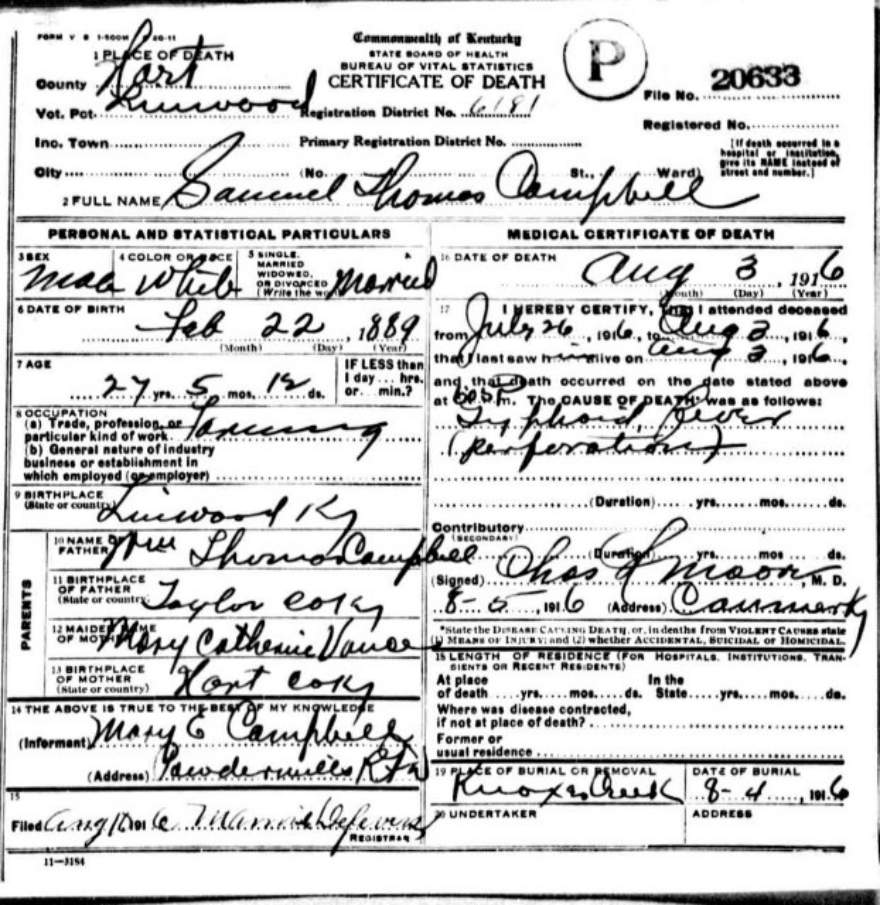 FORM V S 1-500M 20-11
Commonwealth of Kentucky
STATE BOARD OF HEALTH
BUREAU OF VITAL STATISTICS
CERTIFICATE OF DEATH
P
File No. 20633
Registered No.
(If death occurred in a hospital or institution, give its NAME instead of street and number.)
1 PLACE OF DEATH
County Hart
Vot. Pct. Linwood Registration District No. 6181
Inc. Town Primary Registration District No.
City (No. St., Ward)
2 FULL NAME Samuel Thomas Campbell
PERSONAL AND STATISTICAL PARTICULARS
3 SEX Male
4 COLOR OR RACE White
5 SINGLE, MARRIED WIDOWED, OR DIVORCED (Write the word) Married
6 DATE OF BIRTH
Feb 22, 1889
(Month) (Day) (Year)
7 AGE
27 yrs. 5 mos. 12 ds.
IF LESS than 1 day... hrs. or... min.?
8 OCCUPATION
(a) Trade, profession, or
particular kind of work Farming
(b) General nature of industry
business or establishment in
which employed (or employer)
9 BIRTHPLACE
(State or country) Linwood Ky
PARENTS
10 NAME OF
FATHER Wm Thomas Campbell
11 BIRTHPLACE
OF FATHER
(State or country) Taylor Co Ky
12 MAIDEN NAME
OF MOTHER Mary Catherine Vance
13 BIRTHPLACE
OF MOTHER
(State or country) Hart Co Ky
14 THE ABOVE IS TRUE TO THE BEST OF MY KNOWLEDGE
(Informant) Mary E Campbell
(Address) Powdermills
15
Filed Aug 1916 Mamie
REGISTRAR
11-3184
MEDICAL CERTIFICATE OF DEATH
16 DATE OF DEATH
Aug 3, 1916
(Month) (Day) (Year)
17 I HEREBY CERTIFY, That I attended deceased
from July 26, 1916, to Aug 3, 1916
that I last saw him alive on Aug 3, 1916,
and that death occurred on the date stated above
at m. The CAUSE OF DEATH* was as follows:
Typhoid Fever
(Perforation)
(Duration) yrs. mos. ds.
Contributory
(SECONDARY)
(Duration) yrs. mos. ds.
(Signed) Chas Moore, M. D.
8-5, 1916 (Address) Canmer Ky
*State the DISEASE CAUSING DEATH, or, in deaths from VIOLENT CAUSES state
(1) MEANS OF INJURY; and (2) whether ACCIDENTAL, SUICIDAL or HOMICIDAL.
18 LENGTH OF RESIDENCE (FOR HOSPITALS, INSTITUTIONS, TRAN-
SIENTS OR RECENT RESIDENTS)
At place In the
of death yrs. mos. ds. State yrs. mos. ds.
Where was disease contracted,
if not at place of death?
Former or
usual residence
19 PLACE OF BURIAL OR REMOVAL
Knoxes Creek
DATE OF BURIAL
8-4, 1916
20 UNDERTAKER
ADDRESS